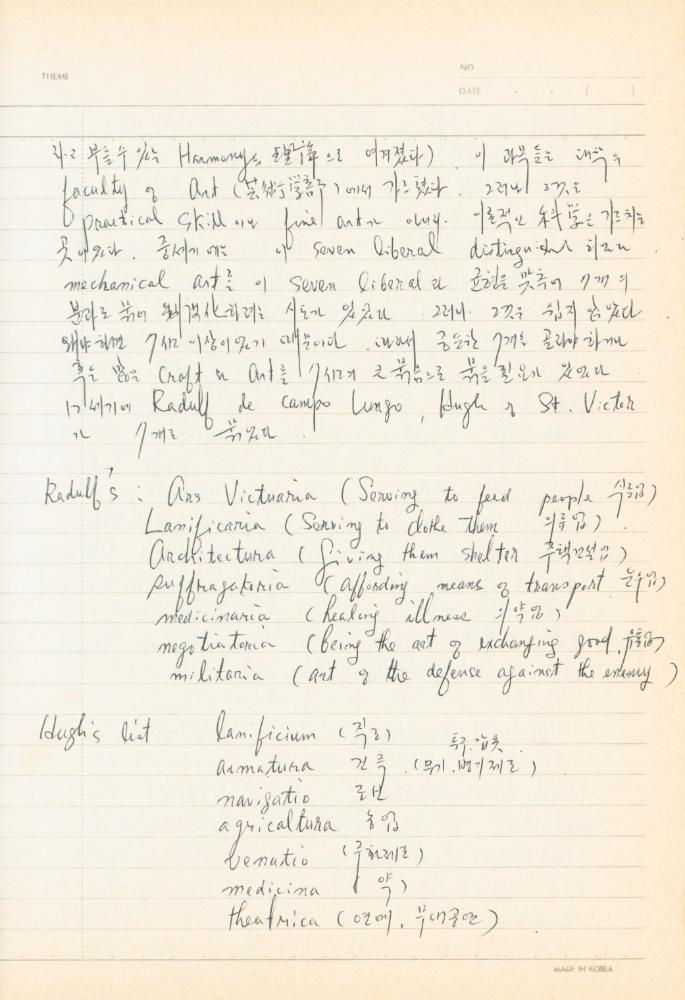 THEME
NO
DATE . . ( )
부를 수 있는 Harmony 으로 여겨졌다) 이 과목들은 대학의
faculty of Art (芸術学部)에서 가르쳤다. 그러나 그것은
practical skill 이나 fine art가 아닌. 이론적인 科学은 가르치는
곳이었다. 중세기에는 이 seven liberal distinguish 하고자
mechanical art를 이 seven liberal과 균형을 맞추어 7개의
분과로 묶어 하려는 시도가 있었다. 그러나 그것은 쉽지 않았다
왜냐하면 7시 이상이 있기 때문이다. 따라서 중요한 7개를 골라야 하거나
혹은 많은 craft와 Art를 7시의 큰 묶음으로 묶을 필요가 있었다
12세기에 Radulf de campo Lungo, Hugh of St. Victor
가 7개로 묶었다.
Radulf's : Ars Victuaria (Serving to feed people 식료업)
Lanificaria (Serving to clothe them 의류업).
Architectura (Giving them shelter 주택건설업)
suffragatoria (affording means of transport 운수업)
medicinaria (healing illness 의약업)
negotiatoria (being the art of exchanging good,
militaria (art of the defense against the enemy)
Hugh's list lanificium (직조)
armatura 건축 (무기, 병기제조)
navigatio
agricaltura 농업
venatio
medicina (약)
theatrica (연예, 무대공연)
MADE IN KOREA